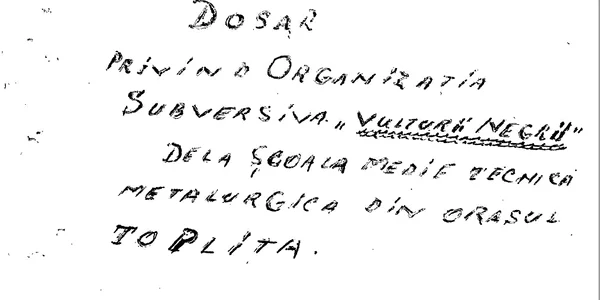 DOSAR
PRIVIND ORGANIZAȚIA
SUBVERSIVA „VULTURII NEGRII"
DELA ȘCOALA MEDIE TECNICA
METALURGICA DIN ORASUL
TOPLITA.